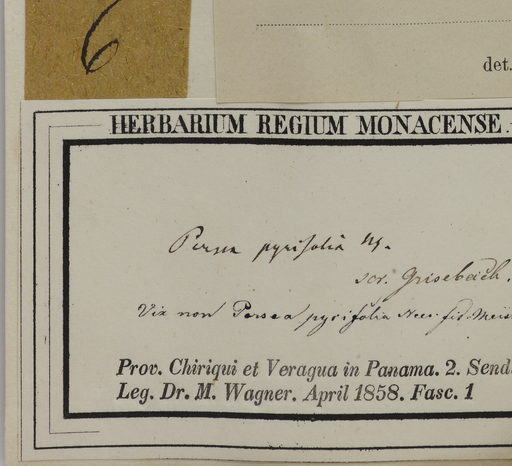 6
det.
HERBARIUM REGIUM MONACENSE.
Persea pyrifolia
scr. Grisebach.
Vix non Persea pyrifolia Nees. fid. Meis
Prov. Chiriqui et Veragua in Panama. 2. Send.
Leg. Dr. M. Wagner. April 1858. Fasc. 1